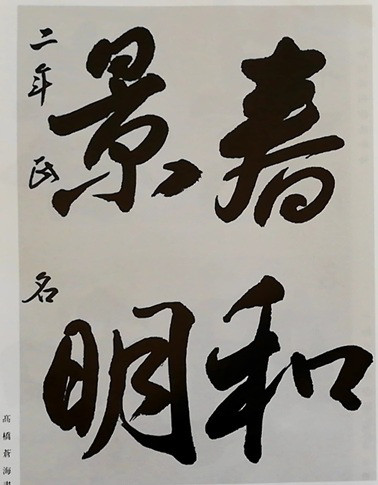 春和
景明
二年 氏 名
髙橋蒼海書